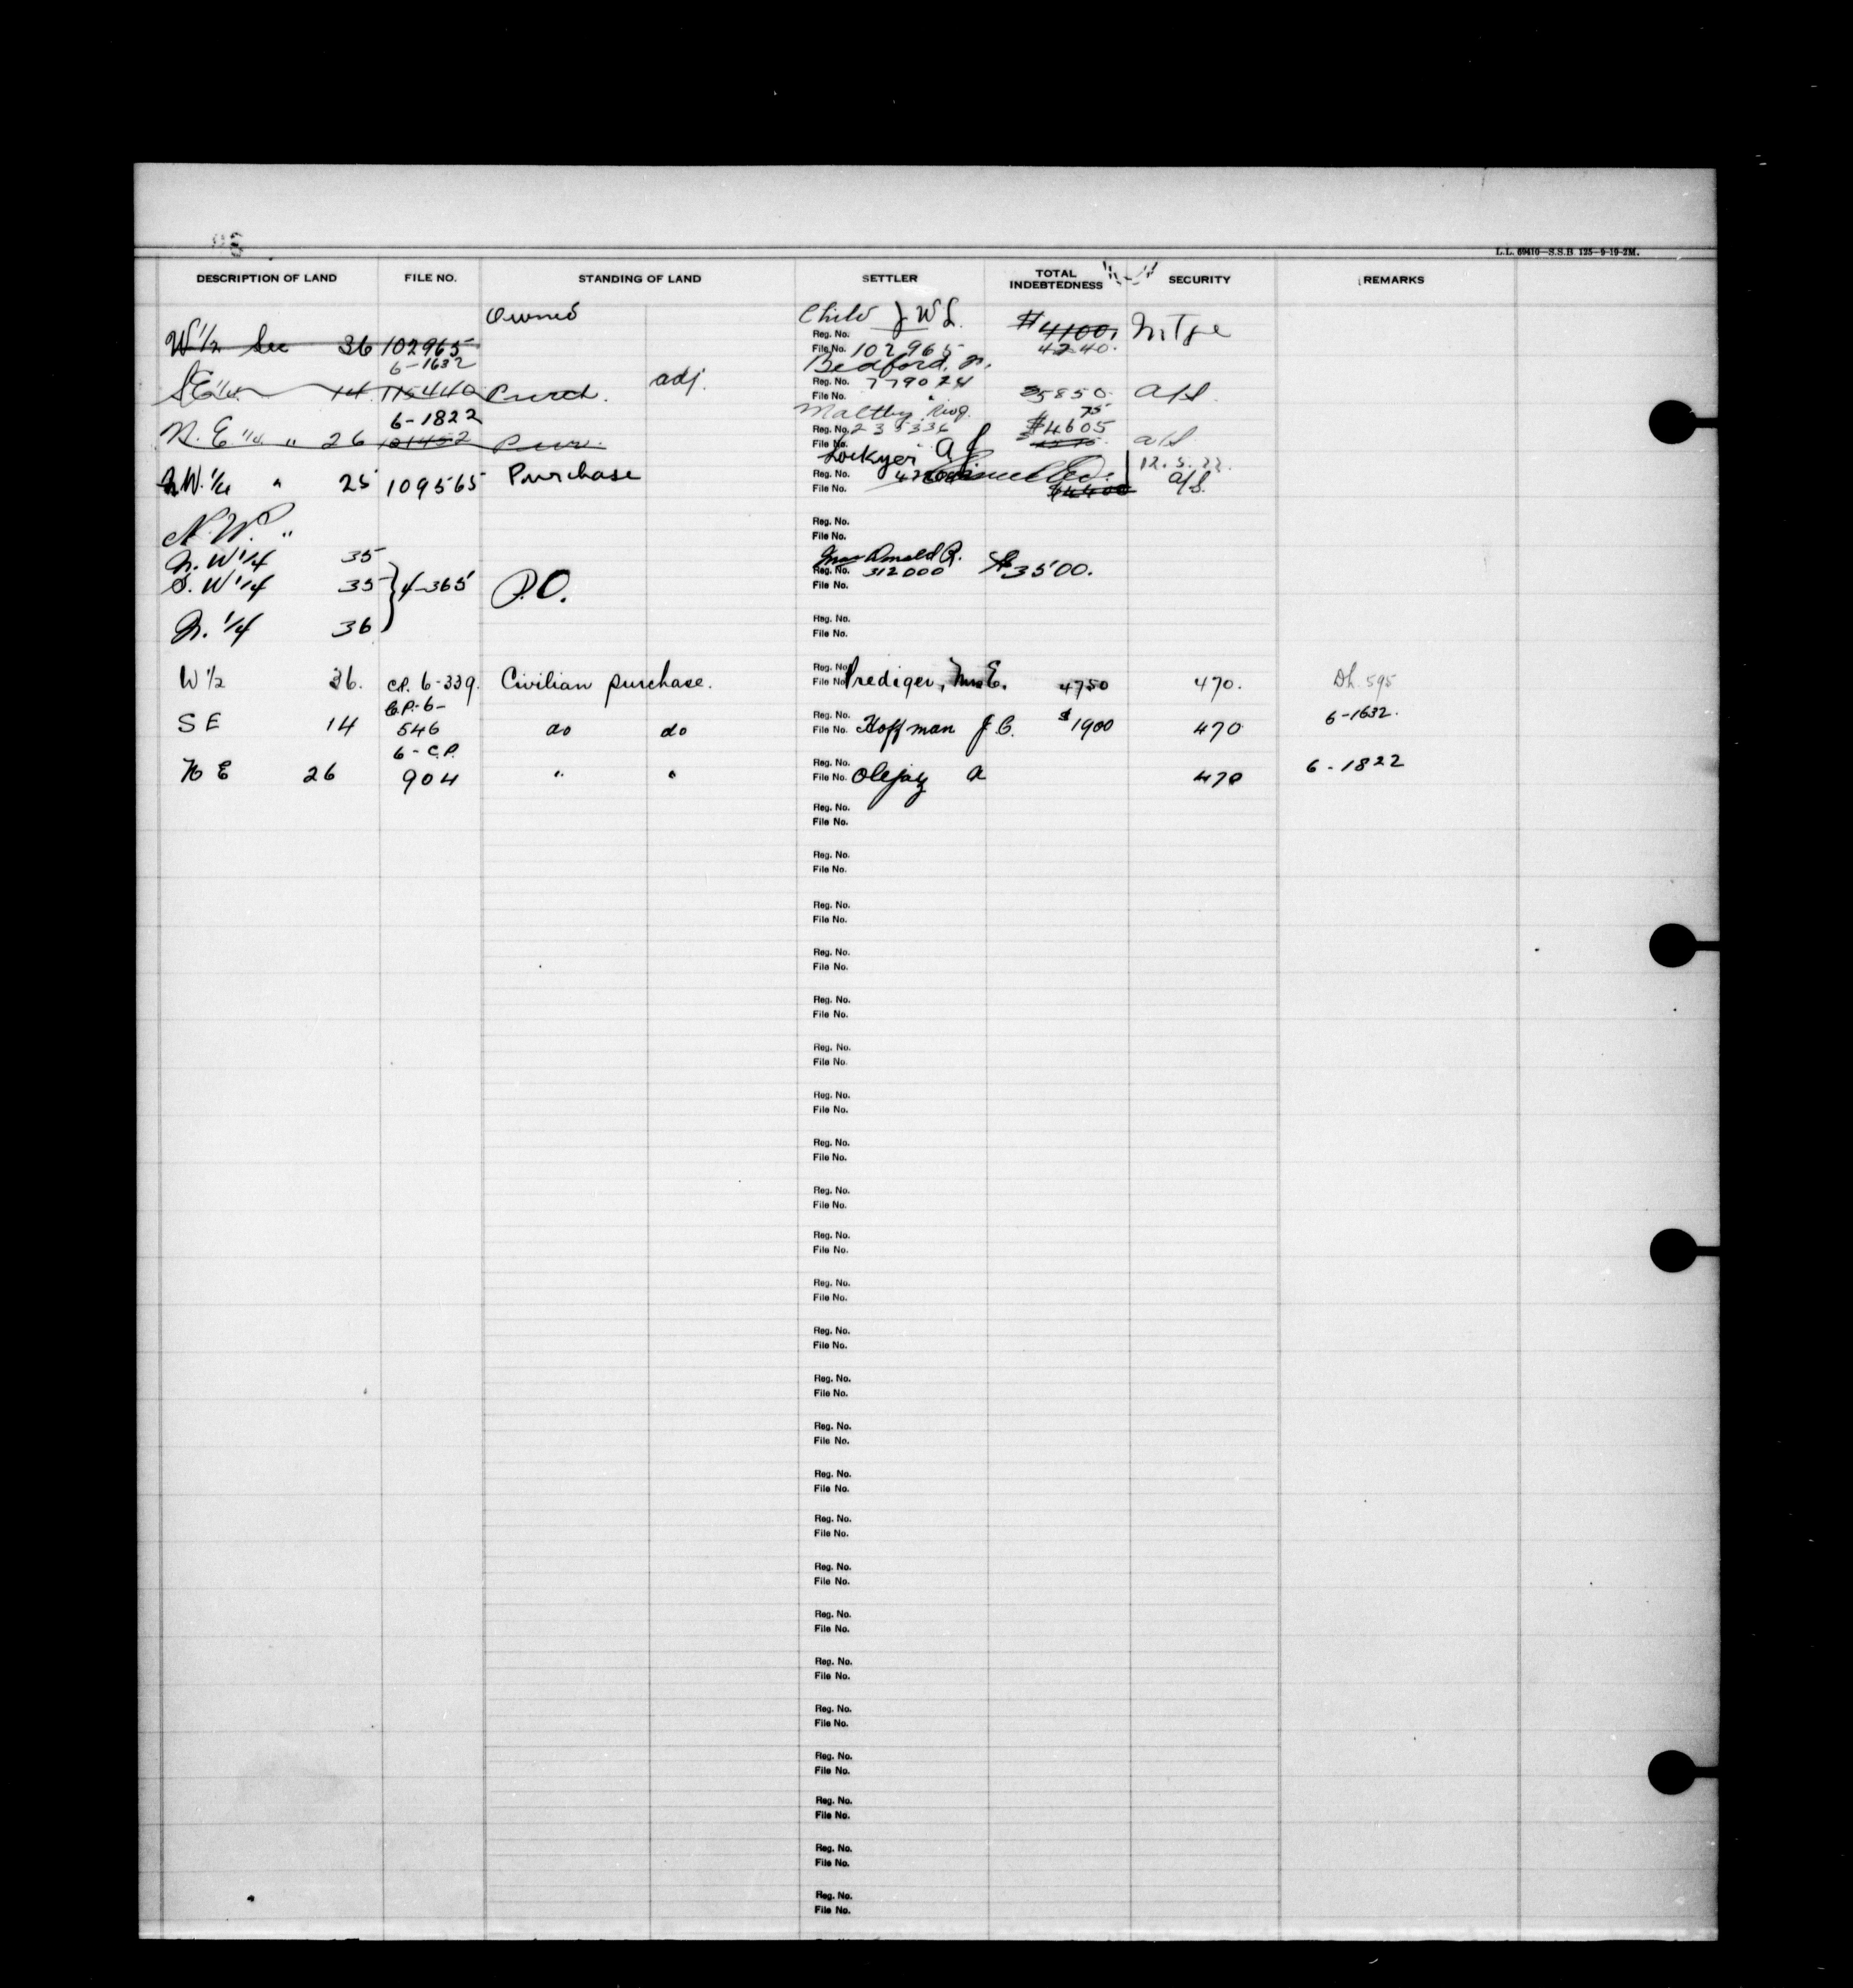 L.L. 69410—S.S.B. 125—9-19-2M.
DESCRIPTION OF LAND FILE NO. STANDING OF LAND SETTLER TOTAL INDEBTEDNESS SECURITY REMARKS
Owned Child J W L. $4100. Mtge
W 1/2 Sec 36 102965 Reg. No.
File No. 102965 4240.
6-1632 Bedford,
SE 1/4 14 115440 Purch. adj. Reg. No. 779024
File No. $5850. a/s.
6-1822 Maltby 75
N.E 1/4 " 26 121452 Pur. Reg. No. 235336 $4605
File No. a/s
Lockyer A J 12.5.22.
N.W. 1/4 " 25 109565 Purchase Reg. No. Cancelled.
File No. $4400 a/s.
N.W. " Reg. No.
File No.
N. W 1/4 35 Donald R.
S. W 1/4 35 4-365 P.O. Reg. No. 312000 $3500.
File No.
N. 1/4 36 Reg. No.
File No.
W 1/2 36. C.P. 6-339. Civilian purchase. Reg. No.
File No. Prediger, Mrs E. 4750 470. Dh. 595
C.P.-6- Reg. No.
SE 14 546 do do File No. Hoffman J.C. $1900 470 6-1632.
6-C.P. Reg. No.
N E 26 904 " " File No. Olejaz A 470 6-1822
Reg. No.
File No.
Reg. No.
File No.
Reg. No.
File No.
Reg. No.
File No.
Reg. No.
File No.
Reg. No.
File No.
Reg. No.
File No.
Reg. No.
File No.
Reg. No.
File No.
Reg. No.
File No.
Reg. No.
File No.
Reg. No.
File No.
Reg. No.
File No.
Reg. No.
File No.
Reg. No.
File No.
Reg. No.
File No.
Reg. No.
File No.
Reg. No.
File No.
Reg. No.
File No.
Reg. No.
File No.
Reg. No.
File No.
Reg. No.
File No.
Reg. No.
File No.
Reg. No.
File No.